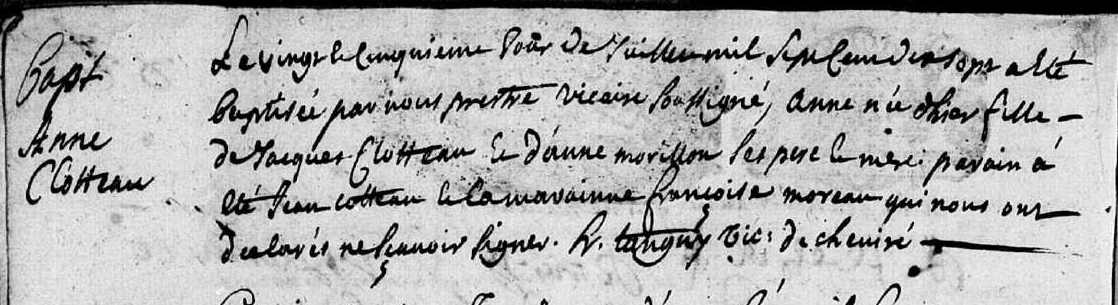 Bapt
Anne
Clotteau
Le vingt le Cinquieme Jour de Juillet mil sept Cent dix sept a Eté
baptisée par nous prestre vicaire soussigné, anne née d'hier fille
de Jacques Clotteau et d'anne morillon ses pere et mere parain á
Eté Jean cotteau et la marainne francoise moreau qui nous ont
declarés ne sçavoir signer. tanguy Vic: de cheviré